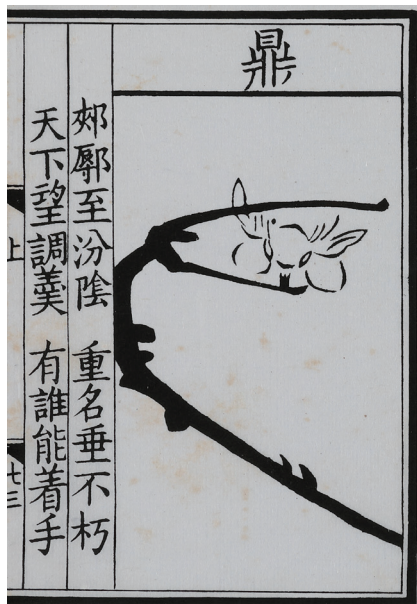 鼎
郟鄏至汾陰　重名垂不朽
天下望調羹　有誰能着手
上
七三